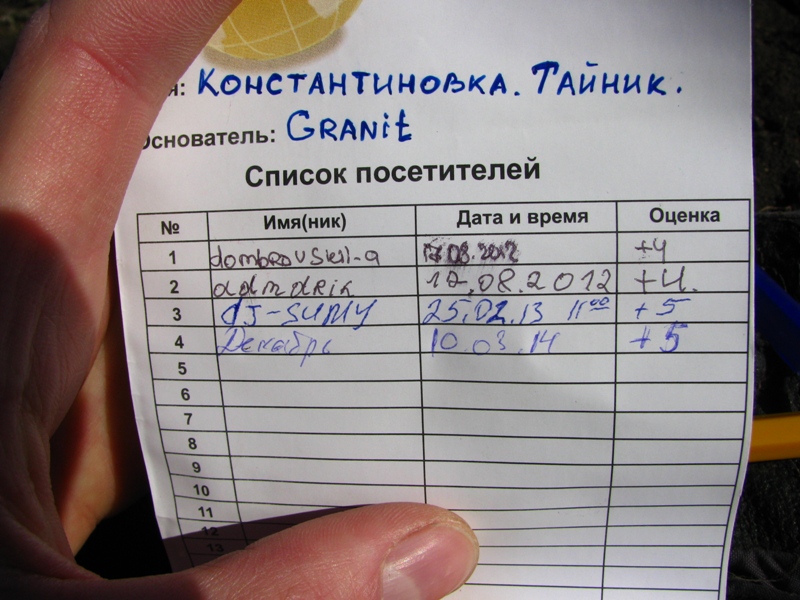 : КОНСТАНТИНОВКА. ТАЙНИК.
Основатель: GRANit
Список посетителей
№ Имя(ник) Дата и время Оценка
1 dombrovskii-a 17.08.2012 +4
2 17.08.2012 +4.
3 dJ-SUMY 25.02.13 11⁰⁰ +5
4 Декабрь 10.03.14 +5
5
6
7
8
9
10
11
12
13